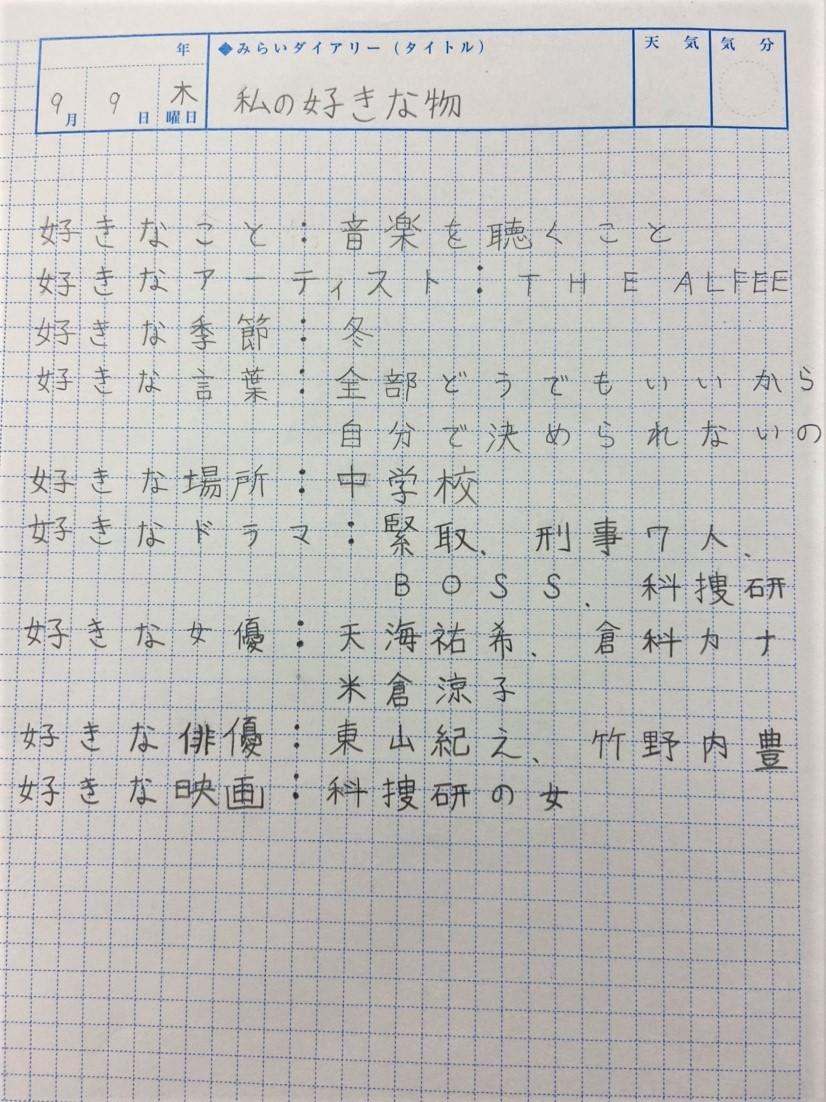 年 ◆みらいダイアリー(タイトル) 天気 気分
9月 9日 木曜日 私の好きな物
好きなこと:音楽を聴くこと
好きなアーティスト:THE ALFEE
好きな季節:冬
好きな言葉:全部どうでもいいから
自分で決められないの
好きな場所:中学校
好きなドラマ:緊取、刑事7人、
BOSS、科捜研
好きな女優:天海祐希、倉科カナ
米倉涼子
好きな俳優:東山紀え、竹野内豊
好きな映画:科捜研の女